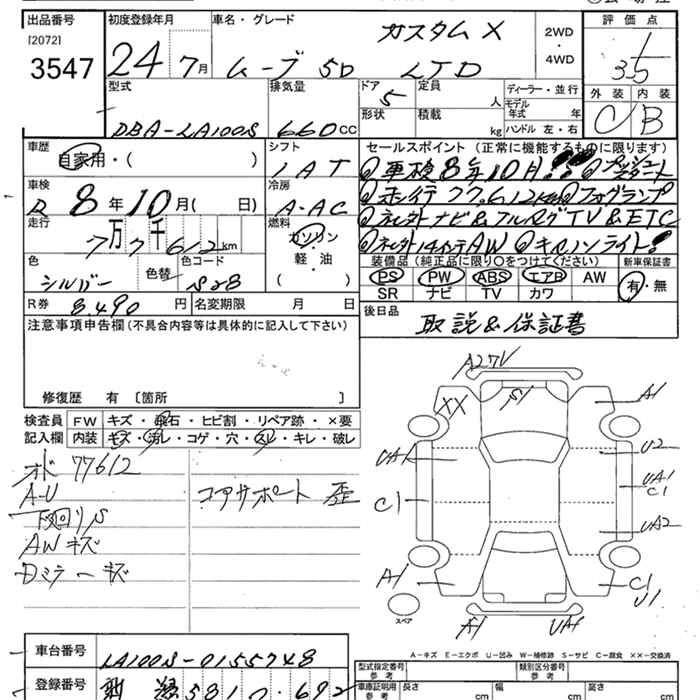 出品番号 初度登録年月 車名・グレード 評価点
[2072] カスタムX 2WD
3547 24年7月 ムーブ 5D LTD 4WD 3.5
型式 排気量 ドア 5 定員 人 ディーラー・並行 外装 内装
DBA-LA100S 660cc 形状 積載 kg モデル年式 年 C B
ハンドル 左・右
車歴 自家用・( ) シフト IAT セールスポイント (正常に機能するものに限ります)
車検 8年10月( 日) 冷房 A-AC 車検8年10月!! プッシュスタート
走行 燃料 走行77.612km フォグランプ
77612km ガソリン・軽・油 ( ) 社外ナビ&フルセグTV&ETC
社外14インチAW キセノンライト!
色 色替 色コード 装備品 (純正品に限り○をつけてください) 新車保証書
シルバー S28 PS PW ABS エアB AW 有・無
SR ナビ TV カワ
R券 8,490円 名変期限 月 日 後日品
取説&保証書
注意事項申告欄(不具合内容等は具体的に記入して下さい)
修復歴 有 〔箇所 〕
検査員 FW キズ・飛石・ヒビ割・リペア跡・×要
記入欄 内装 キズ・汚レ・コゲ・穴・スレ・キレ・破レ
77612
A-U コアサポート 歪
下廻りS
AWキズ
Dミラーキズ
A27V
A1 XX S1
UA1 U2
UA1
C1 C1
UA2
A1 C1
U1
スペア A1 UA1
A-キズ E-エクボ U-凹み W-補修跡 S-サビ C-腐食 XX-交換済
車台番号 LA100S-0155748
型式指定番号 参考 類別区分番号 参考
登録番号 581 692
車庫証明用 参考 長さ cm 幅 cm 高さ cm